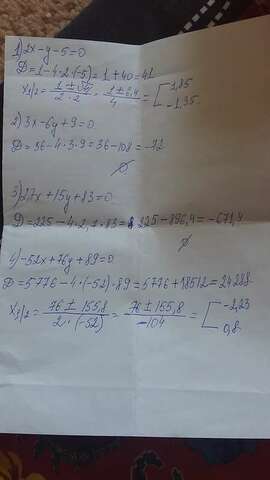 1) 2x-y-5=0
D=1-4·2·(-5)=1+40=41
x₁/₂ = (1±√41)/(2·2) = (1±6,4)/4 = [1,85 -1,35
2) 3x-6y+9=0
D=36-4·3·9=36-108=-72
∅
3) 27x+15y+83=0
D=225-4·2,7·83=225-896,4=-671,4
∅
4) -52x+76y+89=0
D=5776-4·(-52)·89=5776+18512=24288
x₁/₂ = (76±155,8)/(2·(-52)) = (76±155,8)/(-104) = [-2,23 0,8